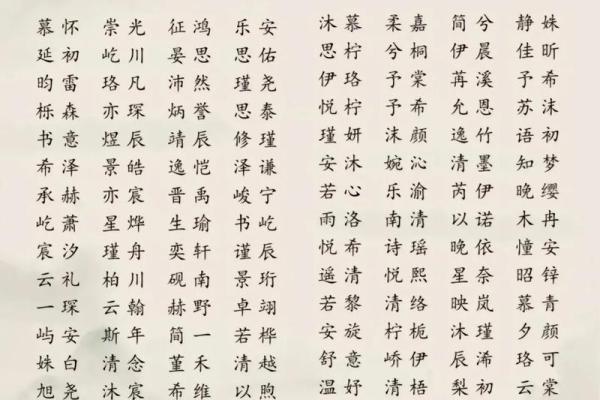 慕怀 崇光 征鸿 乐安 沐慕 柔嘉 简兮 静姝
延初 屹川 晏思 思佑 思柠 兮桐 伊晨 佳昕
昀雷 珞凡 沛然 瑾尧 伊珞 予棠 苒溪 予希
栎森 亦琛 炳誉 思泰 悦柠 予希 允恩 苏沫
书意 煜辰 靖辰 修瑾 瑾妍 沫颜 逸竹 语初
希泽 景皓 逸恺 泽谦 安沐 婉沁 清墨 知梦
承赫 亦宸 晋禹 峻宁 若心 乐渝 芮伊 晚缨
屹萧 星烨 生瑜 书屹 雨洛 南清 以诺 木冉
宸汐 瑾舟 奕轩 谨辰 悦希 诗瑶 晚依 憧安
云礼 柏川 砚南 景珩 遥清 悦熙 星奈 昭锌
一琛 云翰 赫野 卓翊 若黎 清络 映岚 慕青
屿安 斯年 简一 若桦 安旋 柠栀 沐瑾 夕颜
姝白 清念 堇禾 清越 舒意 峤伊 辰浠 珞可
旭尧 沐宸 希维 以煦 温妤 清梧 梨初 云棠